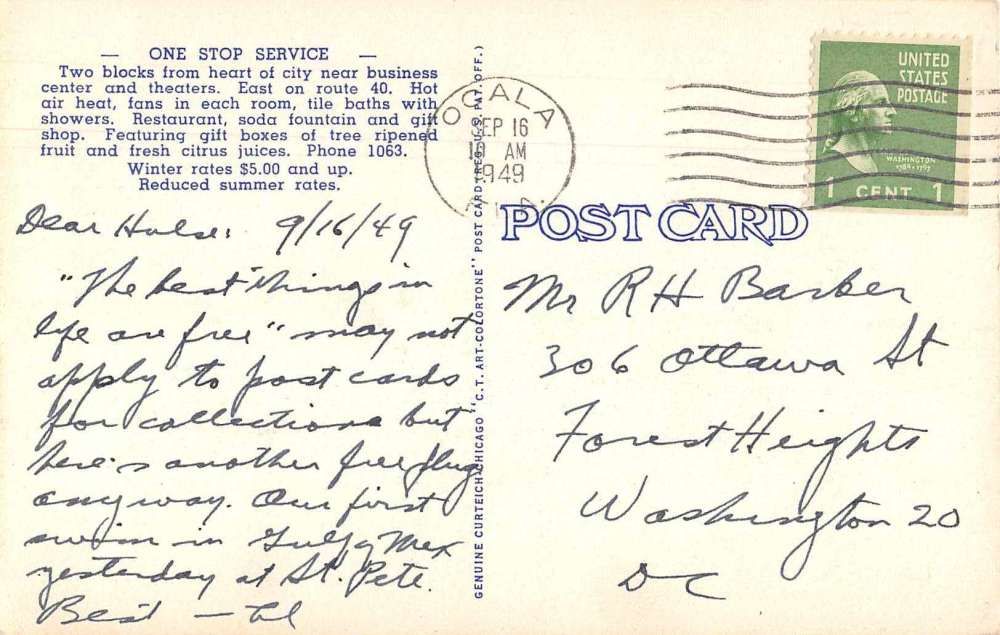 — ONE STOP SERVICE —
Two blocks from heart of city near business
center and theaters. East on route 40. Hot
air heat, fans in each room, tile baths with
showers. Restaurant, soda fountain and gift
shop. Featuring gift boxes of tree ripened
fruit and fresh citrus juices. Phone 1063.
Winter rates $5.00 and up.
Reduced summer rates.
Dear Hulse: 9/16/49
"The best things in
life are free" may not
apply to post cards
for collections but
here's another free plug
anyway. Our first
swim in Gulf of Mex
yesterday at St. Pete.
Best —
GENUINE CURTEICH-CHICAGO "C.T. ART-COLORTONE" POST CARD (REG. U.S. PAT. OFF.)
OCALA
SEP 16
10 AM
1949
UNITED
STATES
POSTAGE
WASHINGTON
1789-1797
1 CENT 1
POST CARD
Mr R H Barker
306 Ottawa St
Forest Heights
Washington 20
DC